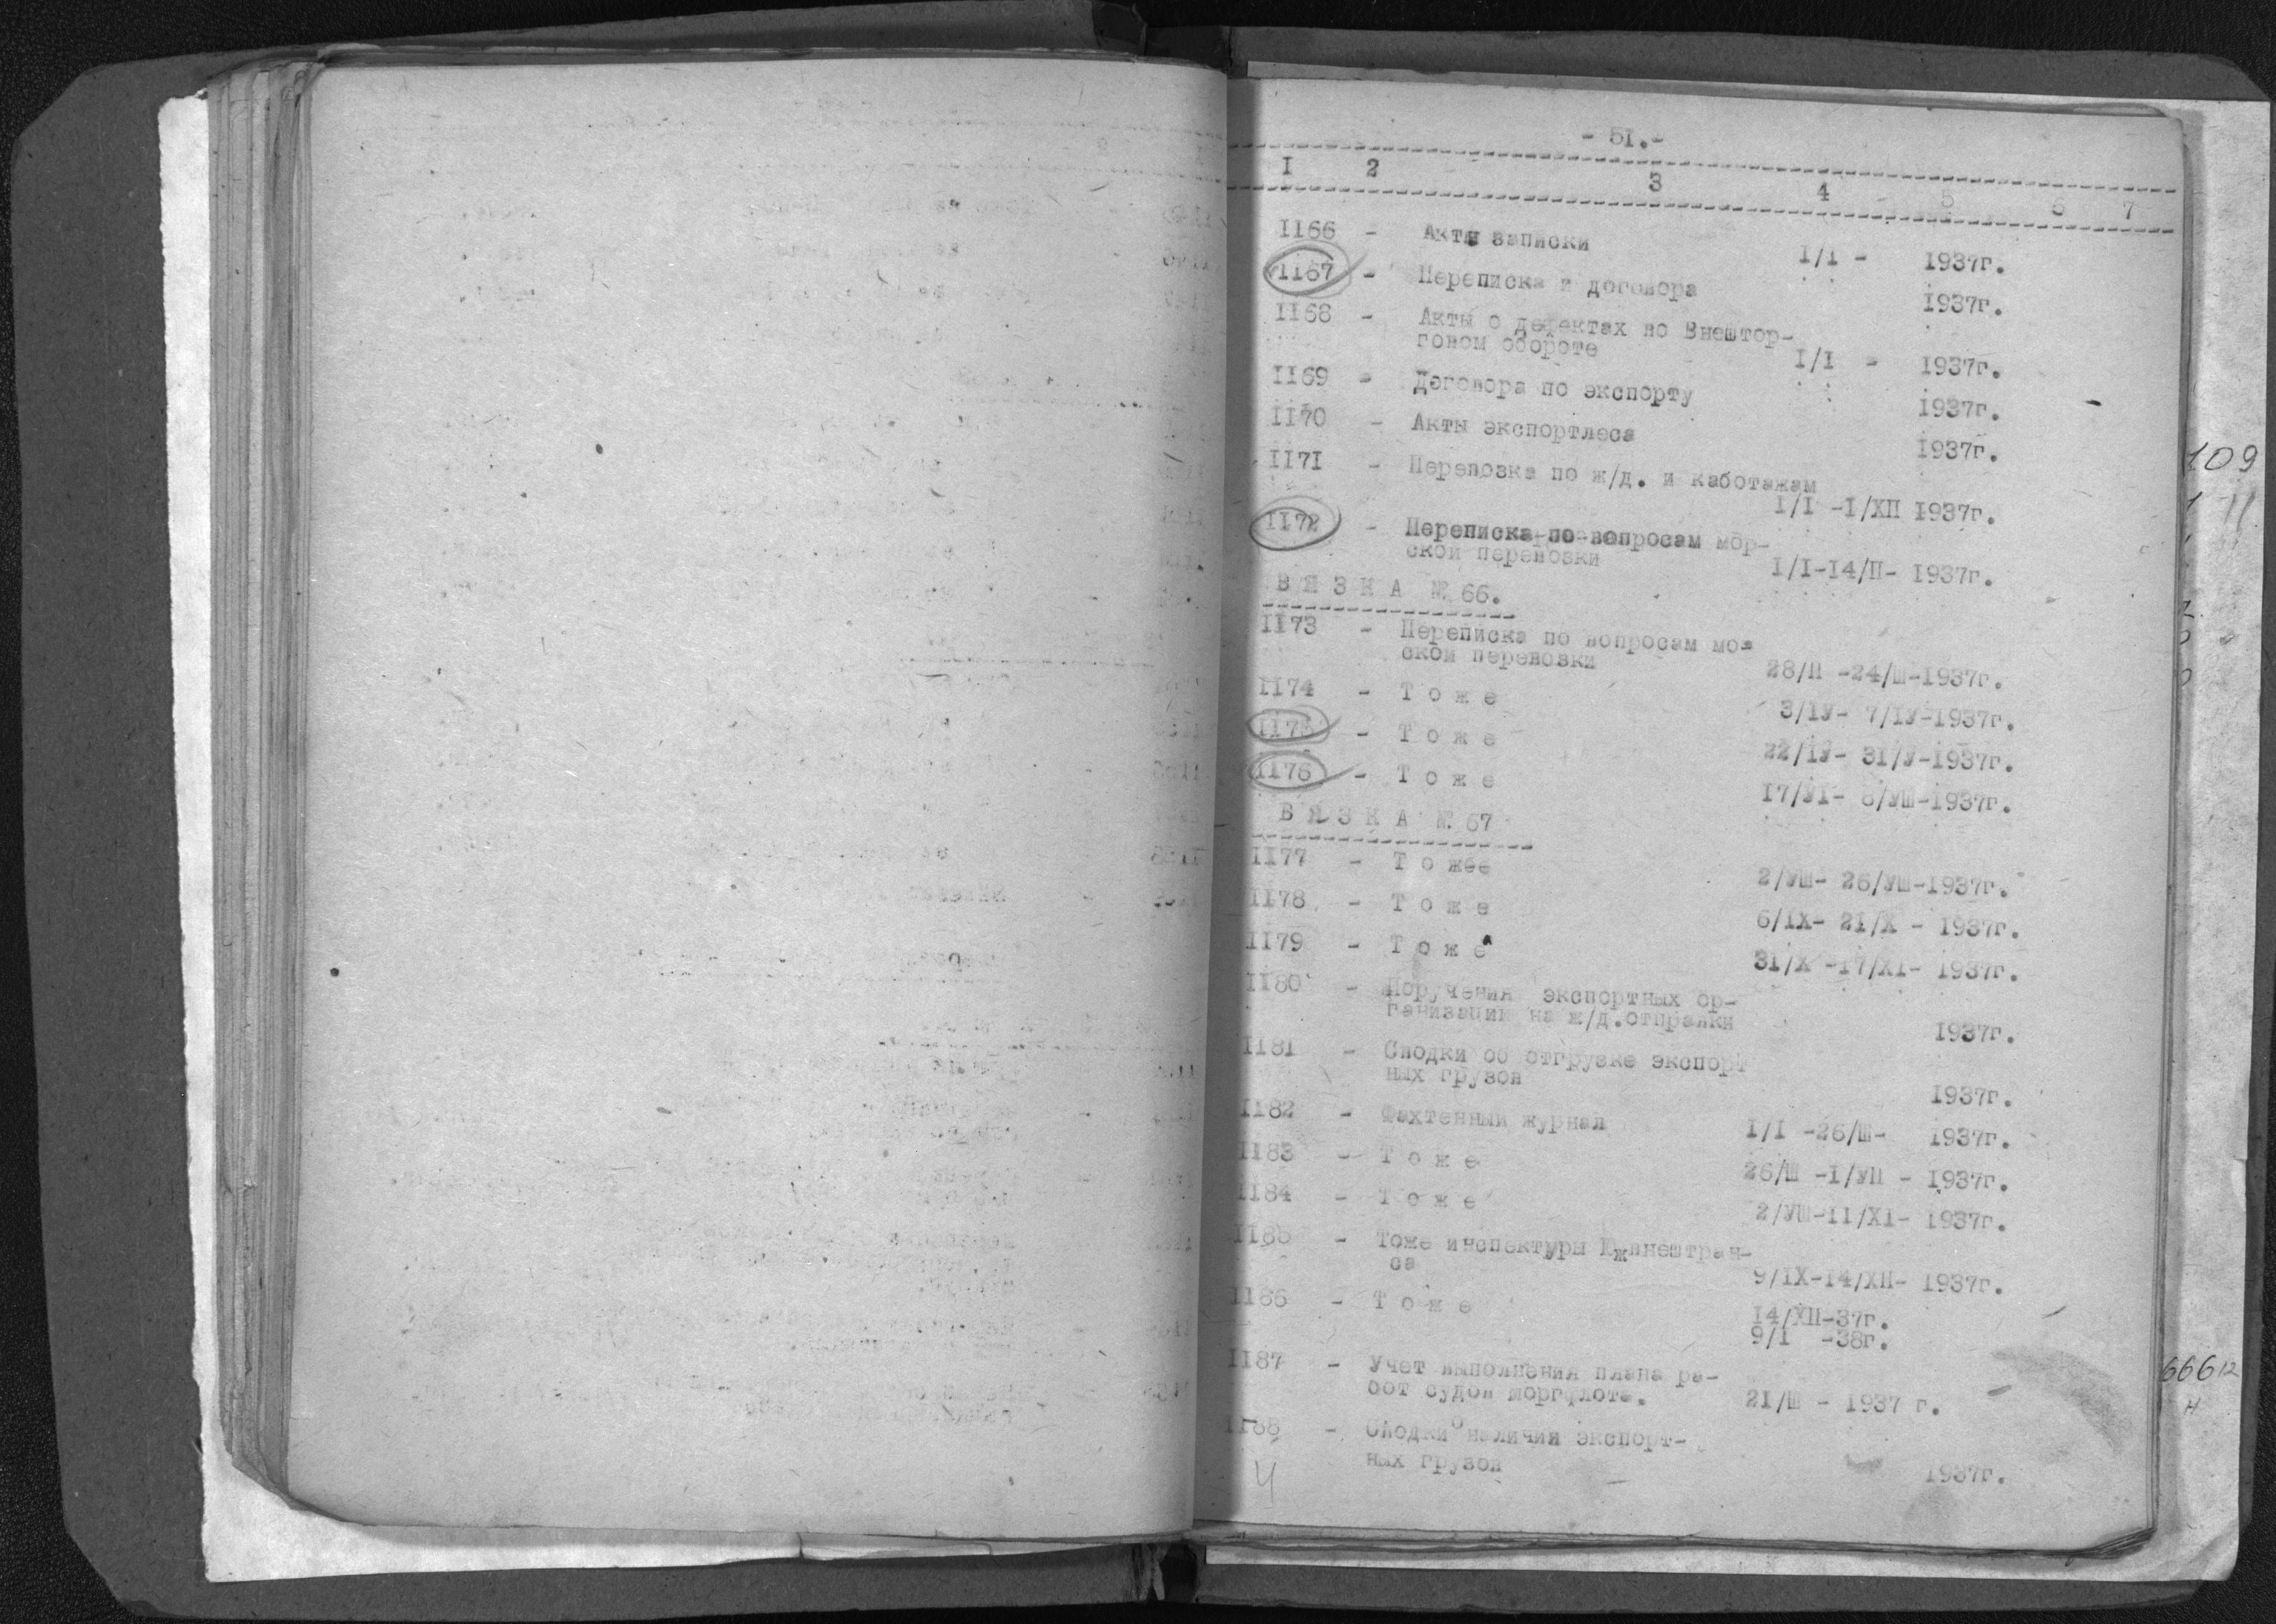 - 51.-
I 2 3 4 5 6 7
II66 - Акты записки I/I - I937г.
II67 - Переписка и договора I937г.
II68 - Акты о дефектах по Внештор-
говом обороте I/I - I937г.
II69 - Договора по экспорту I937г.
II70 - Акты экспортлеса I937г.
II71 - Перевозка по ж/д. и каботажам
I/I -I/XII I937г.
II72 - Переписка по вопросам мор-
ской перевозки I/I-I4/II- I937г.
В Я З К А № 66.
II73 - Переписка по вопросам мо-
ской перевозки 28/II -24/Ш-I937г.
II74 - Т о ж е 3/IУ- 7/IУ-I937г.
II75 - Т о ж е 22/IУ- 31/У-I937г.
II76 - Т о ж е I7/УI- 8/УШ-I937г.
В Я З К А № 67
II77 - Т о жее 2/УШ- 26/УШ-I937г.
II78 - Т о ж е 6/IX- 21/X - I937г.
II79 - Т о ж е 31/X -I7/XI- I937г.
II80 - Поручения экспортных ор-
ганизации на ж/д.отправки I937г.
II81 - Сводки об отгрузке экспорт
ных грузов I937г.
II82 - Фахтенный журнал I/I -26/Ш- I937г.
II83 - Т о ж е 26/Ш -I/УП - I937г.
II84 - Т о ж е 2/УШ-II/XI- I937г.
II85 - Тоже инспектуры Южвнештран-
са 9/IX-I4/XII- I937г.
II86 - Т о ж е I4/XII-37г.
9/I -38г.
II87 - Учет выполнения плана ра-
бот судов морфлота. 21/Ш - I937 г.
II88 - Сводки о наличии экспорт-
ных грузов I937г.
109
11
666/2
н